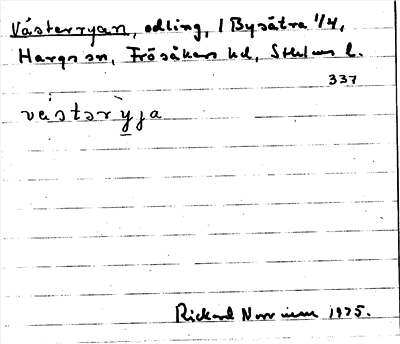 Västerryan, odling, 1 Bysätra 1/4,
Hargs sn, Frösåkers hd, Sthlms l.
337
västərỳja
Rickard Norrman 1935.